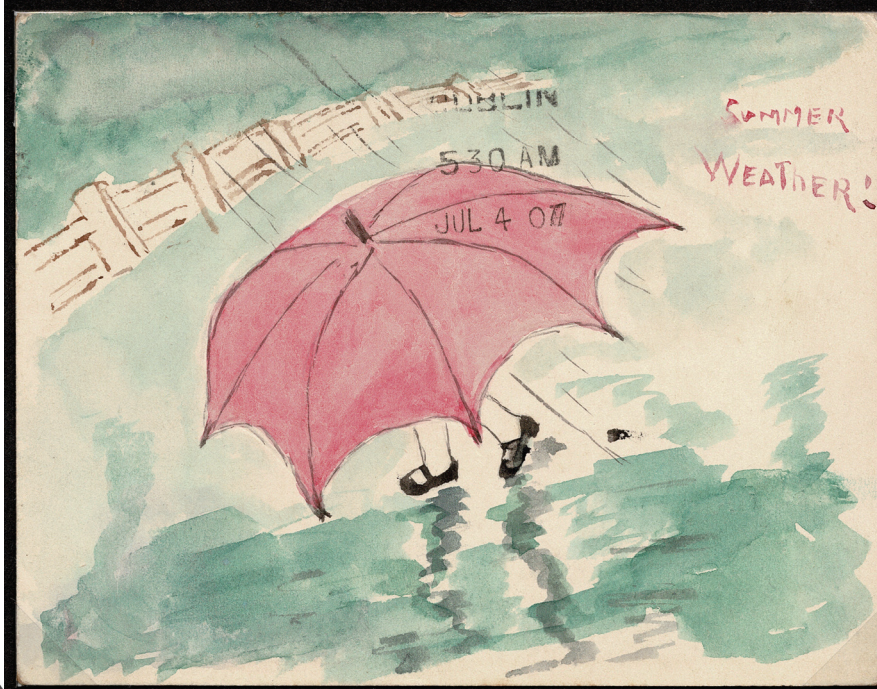 DUBLIN
5 30 AM
JUL 4 07
SUMMER
WEATHER!